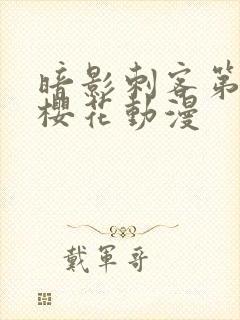 暗影刺客第
櫻花動漫
戴軍哥